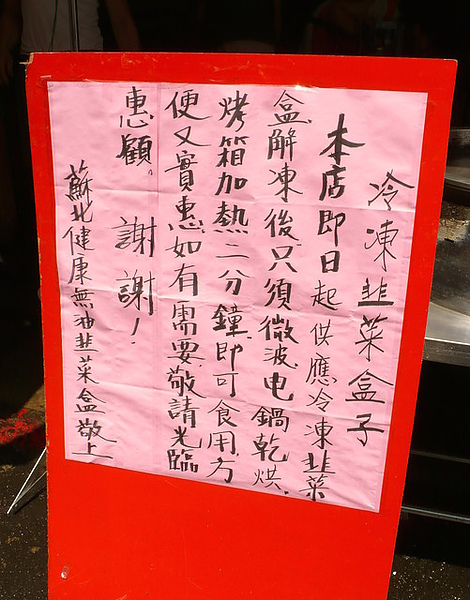 冷凍韭菜盒子
本店即日起供應冷凍韭菜
盒,解凍後只須微波、电鍋乾烘、
烤箱加熱二分鐘,即可食用,方
便又實惠如有需要,敬請光臨
惠顧。謝謝!
蘇北健康無油韭菜盒敬上